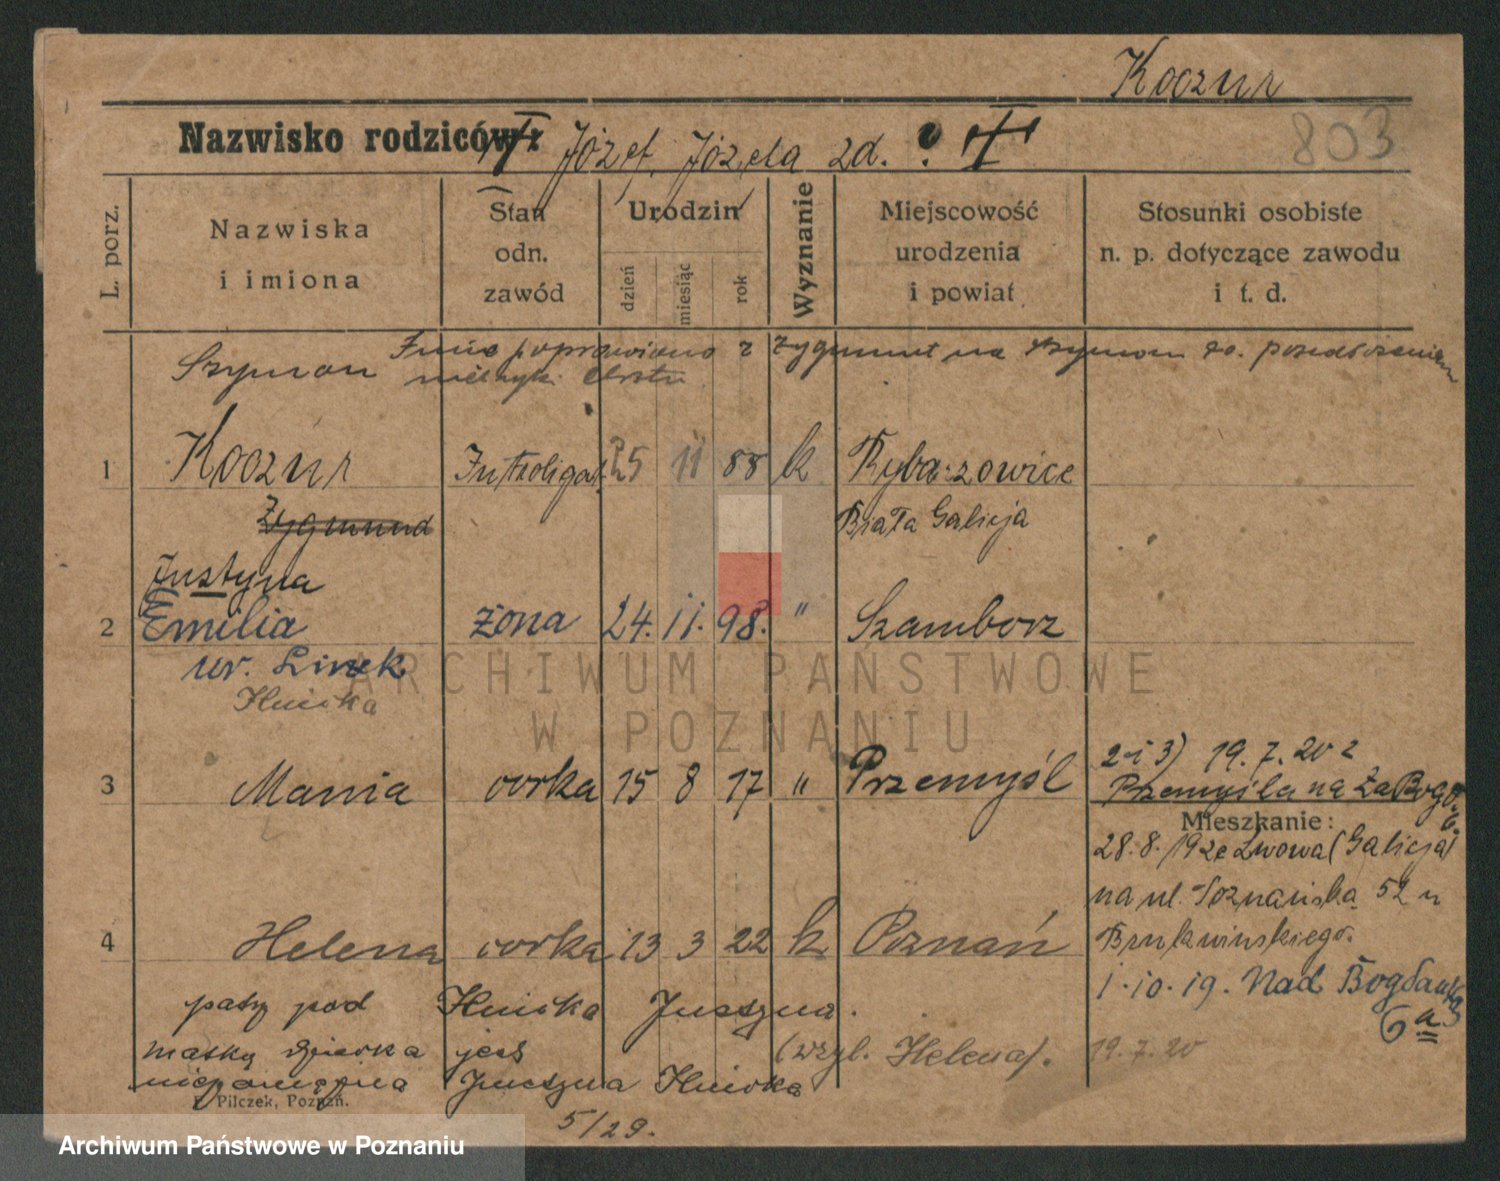 Koczur
803
Nazwisko rodziców: Józef, Józefa zd. ?
L. porz.
Nazwiska
i imiona
Stan
odn.
zawód
Urodzin
dzień
miesiąc
rok
Wyznanie
Miejscowość
urodzenia
i powiat
Stosunki osobiste
n. p. dotyczące zawodu
i t. d.
Imię poprawiono z Zygmunt na Szymon
Szymon
1 Koczur Introligat. 25 11 88 k Rybarzowice
Zygmund Biała Galicja
Justyna
2 Emilia żona 24. 11. 98. " Szamborz
ur. Linek
Hnicka
ARCHIWUM PAŃSTWOWE
W POZNANIU
3 Mania córka 15 8 17 " Przemyśl
2 i 3) 19.7.20 z
Przemyśla na ZaBogd.
6.
Mieszkanie:
28.8.19 ze Lwowa (Galicja)
na ul. Poznańska 52 u
Brukwińskiego.
4 Helena córka 13 3 22 k Poznań
1.10.19. Nad Bogdanką
6a
patrz pod Hnicka Justyna.
(wzgl. Helena). 19.7.20
matką dziecka jest
Justyna Hnicka
F. Pilczek, Poznań.
5/29.
Archiwum Państwowe w Poznaniu